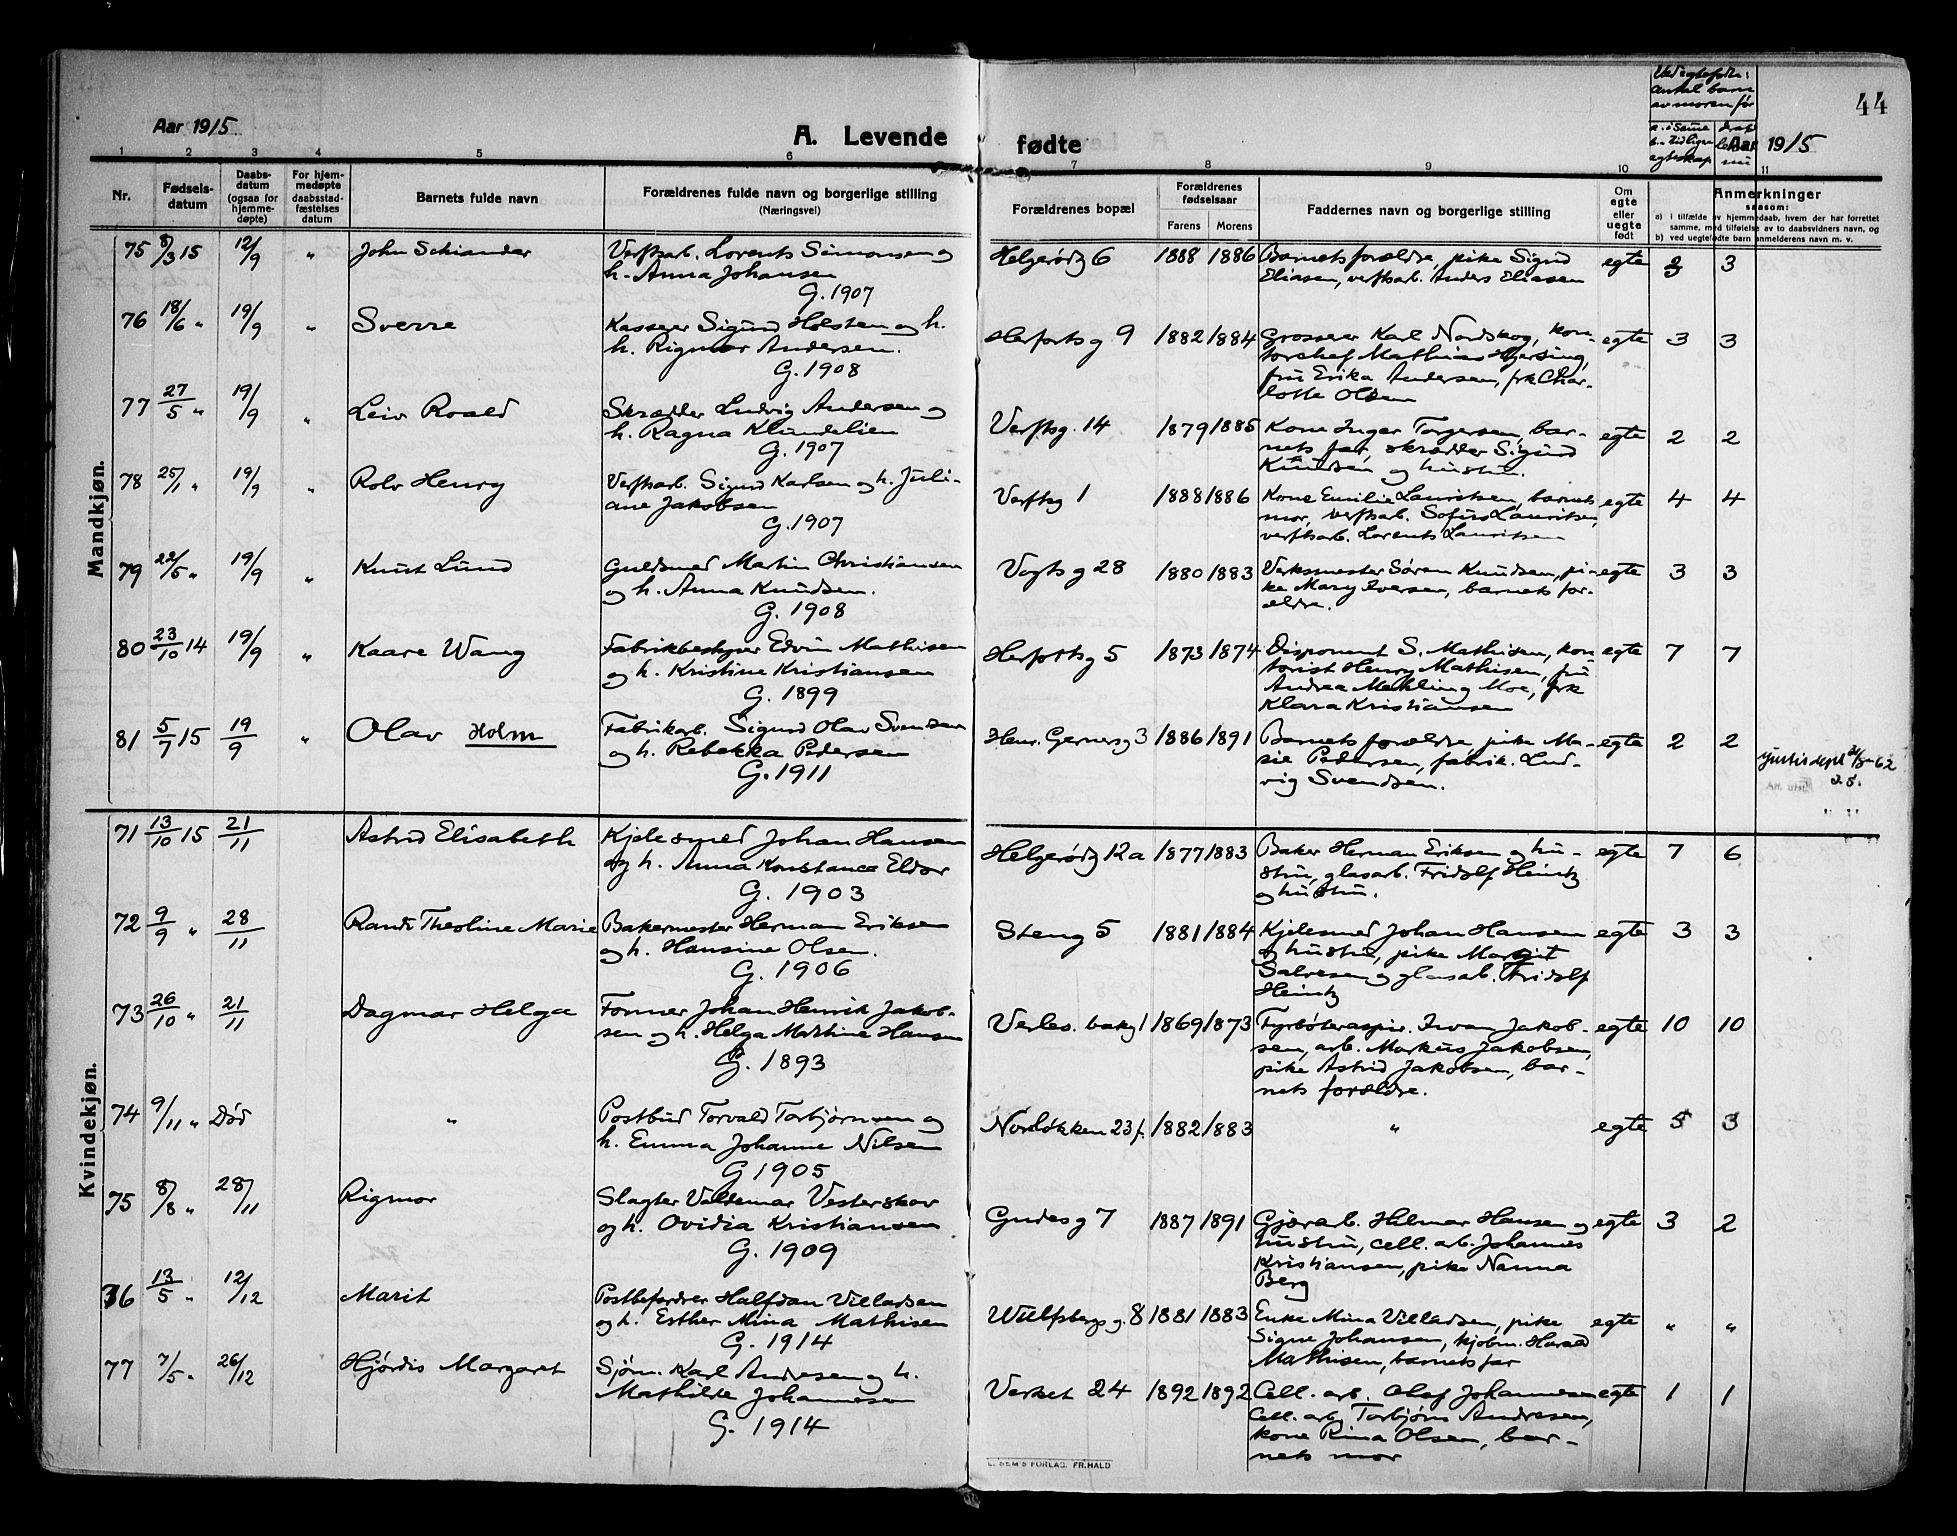 44
Ved egtefødte:
antal barn
av moren før
a. i samme
b. tidligere
egteskap
Aar 1915
A. Levende fødte
Aar 1915
1 2 3 4 5 6 7 8 9 10 11
Nr. Fødsels-datum Daabs-datum (ogsaa for hjemme-døpte) For hjem-medøpte daabsstad-fæstelses datum Barnets fulde navn Forældrenes fulde navn og borgerlige stilling (Næringsvei) Forældrenes bopæl Forældrenes fødselsaar Farens Morens Faddernes navn og borgerlige stilling Om egte eller uegte født Anmerkninger
saasom:
a) i tilfælde av hjemmedaab, hvem der har forrettet
samme, med tilføielse av to daabsvidners navn, og
b) ved uegtefødte barn anmelderens navn m. v.
Mandkjøn.
75 8/3 15 12/9 " John Schiander Verftsarb. Lorents Simonsen og Helgerødg 6 1888 1886 Barnets forældre, pike Sigrid egte 2 3
h. Anna Johansen Eliasen, verftsarb. Anders Eliasen
G. 1907
76 18/6 " 19/9 " Sverre Kasserer Sigurd Holsten og h. Herfortsg 9 1882 1884 Grosserer Karl Nordskog, kon- egte 3 3
h. Rigmor Andersen. torchef Mathias Gjersing,
G. 1908 fru Erika Andersen, frk Char-
lotte Olsen
77 27/5 " 19/9 " Leiv Roald Skrædder Ludvig Andersen og Verftsg. 14 1879 1885 Kone Inger Torgersen, bar- egte 2 2
h. Ragna Klundelien nets far, skrædder Sigurd
G. 1907 Knudsen og hustru.
78 25/1 " 19/9 " Rolv Henry Verftsarb. Sigurd Karlsen og h. Juli- Verftsg 1 1888 1886 Kone Emilie Lauritsen, barnets egte 4 4
ane Jakobsen mor, verftsarb. Sofus Lauritsen,
G. 1907 verftsarb. Lorents Lauritsen
79 22/5 " 19/9 " Knut Lund Guldsmed Martin Christiansen Vogts g 28 1880 1883 Verksmester Søren Knudsen, pi- egte 3 3
og h. Anna Knudsen. ke Mary Iversen, barnets for-
G. 1908 ældre.
80 23/10 14 19/9 " Kaare Wang Fabrikbestyrer Edvin Mathisen Herfortsg 5 1873 1874 Disponent S. Mathisen, kon- egte 7 7
og h. Kristine Kristiansen torist Henry Mathisen, fru
G. 1899 Andrea Mehling Moe, frk
Klara Kristiansen
81 5/7 15 19/9 " Olav Holm Fabrikarb. Sigurd Olav Svendsen Henr. Gernersg 3 1886 1891 Barnets forældre, pike Ma- egte 2 2
og h. Rebekka Pedersen sie Pedersen, fabrik. Lud-
G. 1911 vig Svendsen.
Kvindekjøn.
71 13/10 15 21/11 Astrid Elisabeth Kjelesmed Johan Hansen Helgerødg 12a 1877 1883 Baker Herman Eriksen og hu- egte 7 6
og h. Anna Konstance Eldor stru, glasarb. Fridolf Heintz
G. 1903 og hustru.
72 9/9 " 28/11 Randi Theoline Marie Bakermester Herman Eriksen Steng 5 1881 1884 Kjelesmed Johan Hansen egte 3 3
og h. Hansine Olsen. og hustru, pike Margit
G. 1906 Salvesen og glasarb. Fridolf
Heintz
73 26/10 " 21/11 Dagmar Helga Former Johan Henrik Jakob- Verles. bakg 1 1869 1873 Fyrbøteraspir. Ivan Jakob- egte 10 10
sen og h. Helga Martine Hansen sen, arb. Markus Jakobsen,
G. 1893 pike Astrid Jakobsen, bar-
nets forældre.
74 9/11 " Død " Postbud Torvald Torbjørnsen og Nordløkken 23 f. 1882 1883 " egte 5 3
h. Emma Johanne Nilsen
G 1905
75 8/8 " 28/11 Rigmor Slagter Valdemar Vesterskov Gudesg 7 1887 1891 Gjørarb. Hilmar Hansen og egte 3 2
og h. Ovidia Kristiansen hustru, cell. arb. Johannes
G. 1909 Kristiansen, pike Nanna
Berg
76 13/5 " 12/12 Marit Postbefordrer Halfdan Villadsen Wulfsbergs g. 8 1881 1883 Enke Mina Villadsen, pike egte " "
og h. Esther Mina Mathisen Signe Johansen, kjøbm. Harald
G. 1914 Mathisen, barnets far
77 7/5 " 26/12 Hjørdis Margaret Sjøm. Karl Andresen og h. Verket 24 1892 1892 Cell. arb. Olaf Johannesen egte 1 1
Mathilde Johannesen Cell. arb. Torbjørn Andresen,
G. 1914 kone Rina Olsen, bar-
nets mor
E. SEM'S FORLAG. FR.HALD